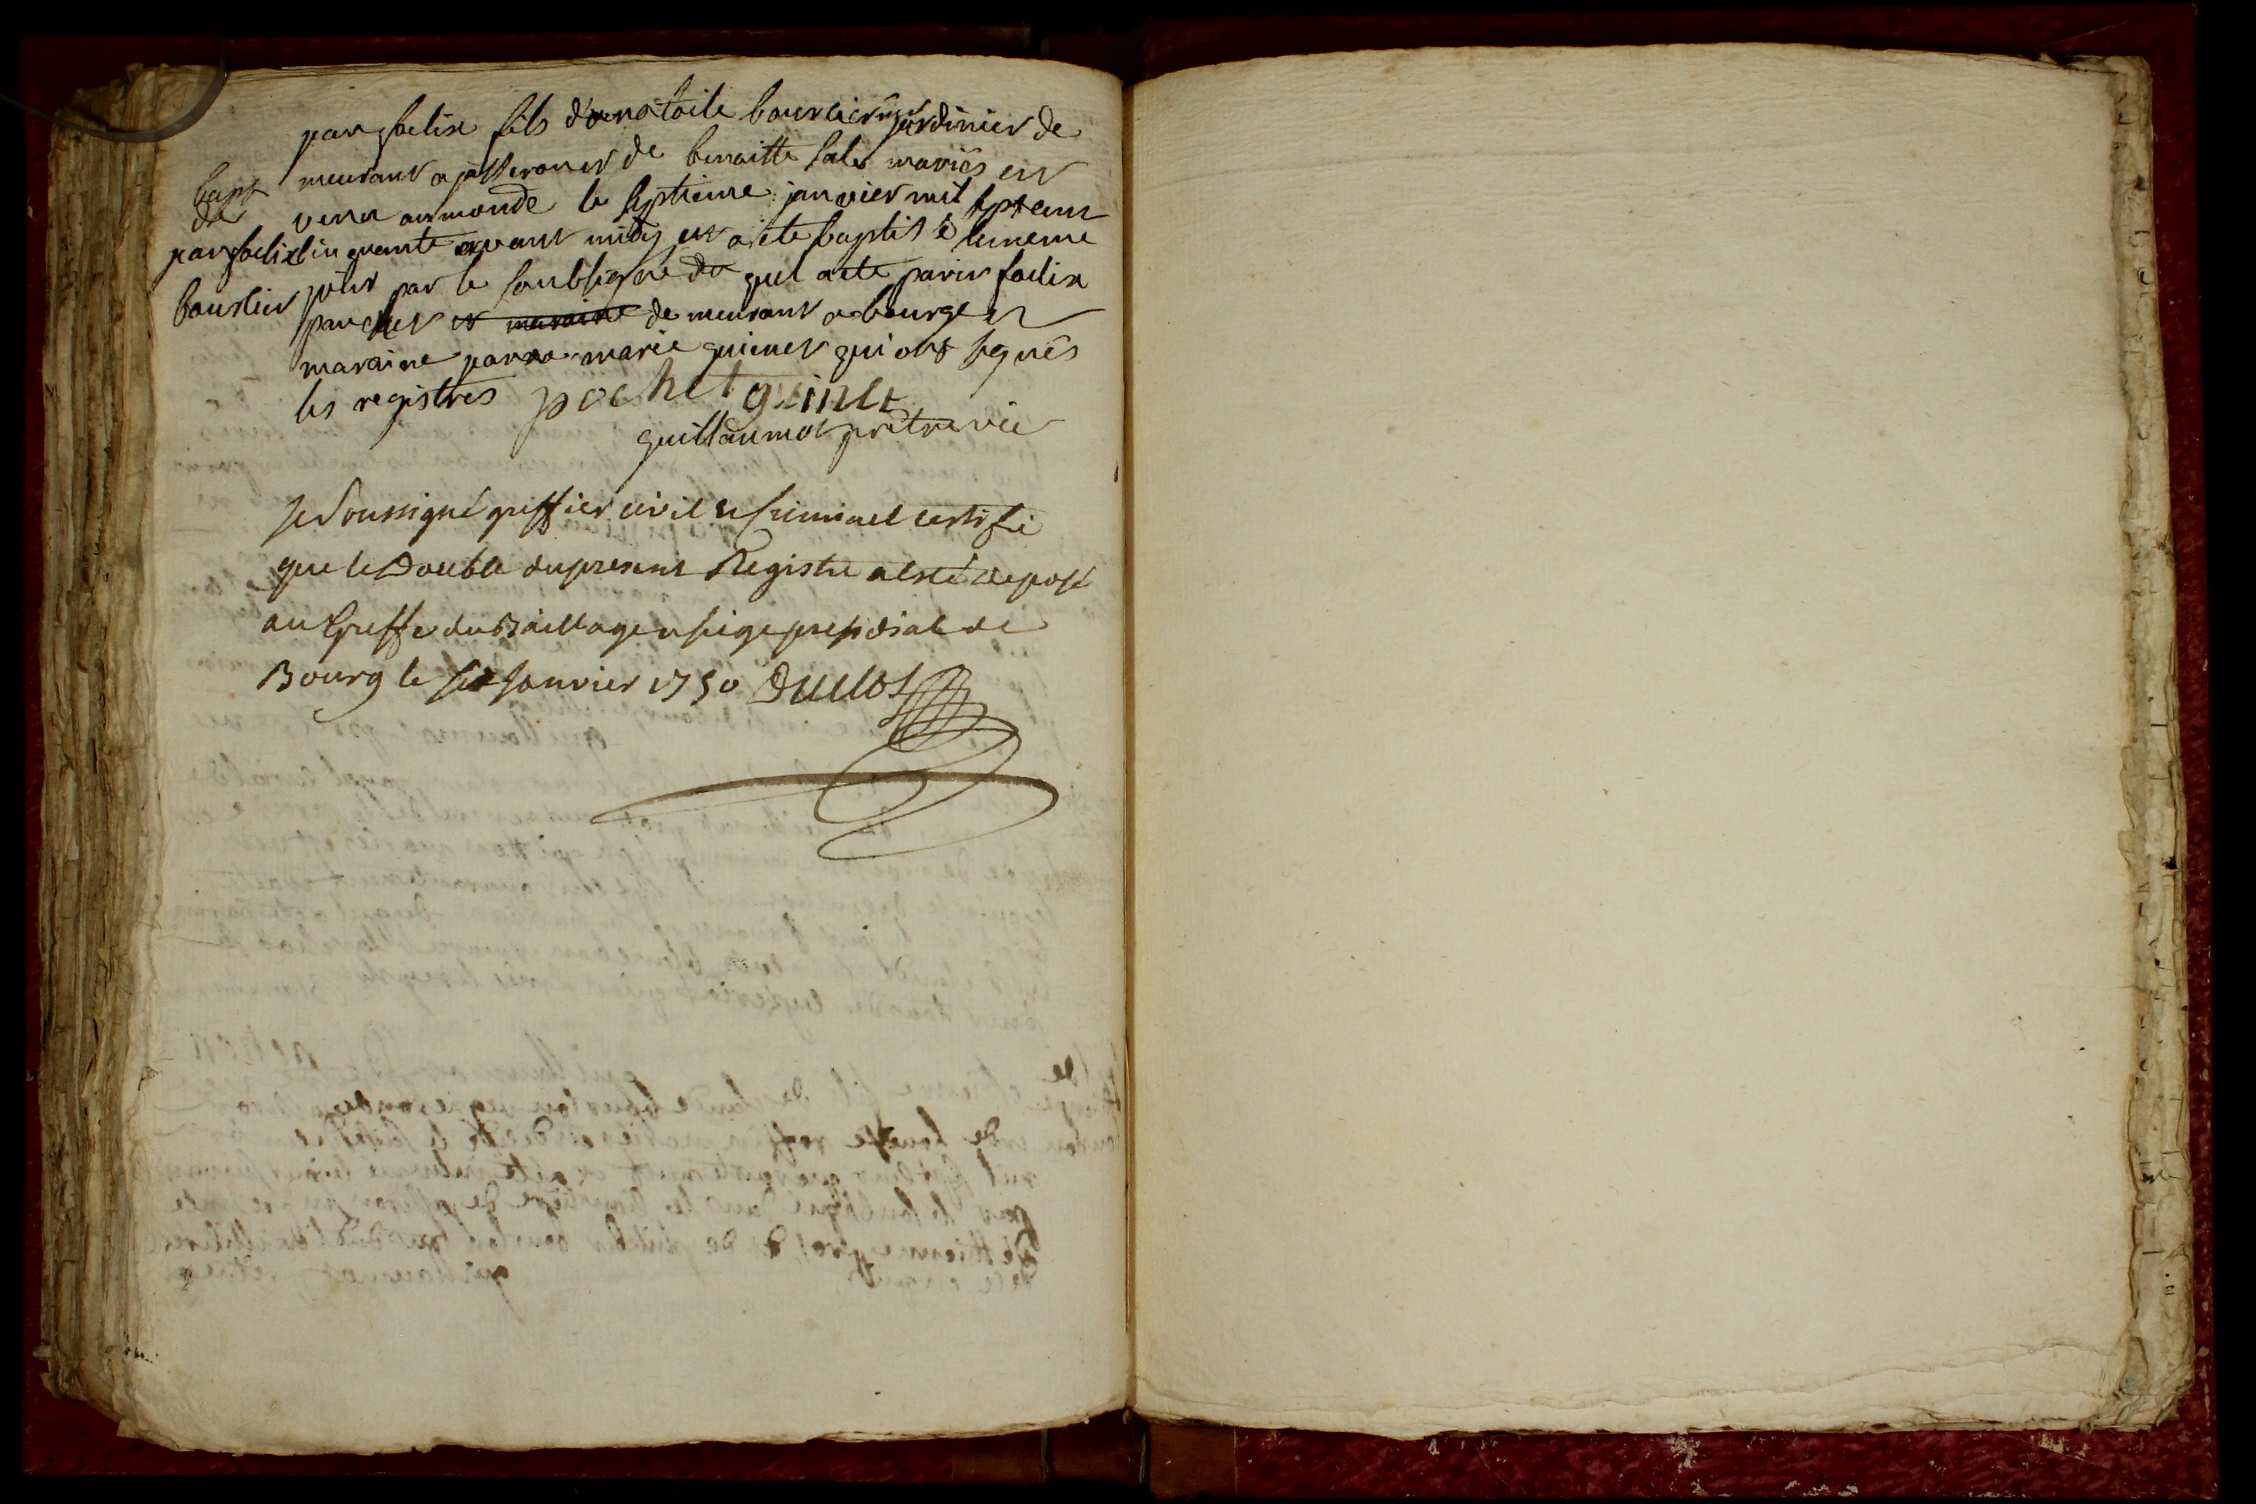 bapt
de
jan foelix
bourcier
jan foelix fils d'anatoile bourcier jardinier de
meurant a jasseron et de benoitte sale mariés est
venu au monde le septieme janvier mil sept cent
cinquante avant midy et a ete baptisé le meme
jour par le soubsigné du quel a ete parin foelix
pauchet et maraine demeurant a bourg et
maraine janna marie guinet qui ont signés
les registres pochet guinet
guillaumot prêtre vic
Je soussigné greffier civil et criminel certifie
que le Double du present Registre a esté deposé
au Greffe du Baillage et siege presidial de
Bourg le Janvier 1750 Duclos